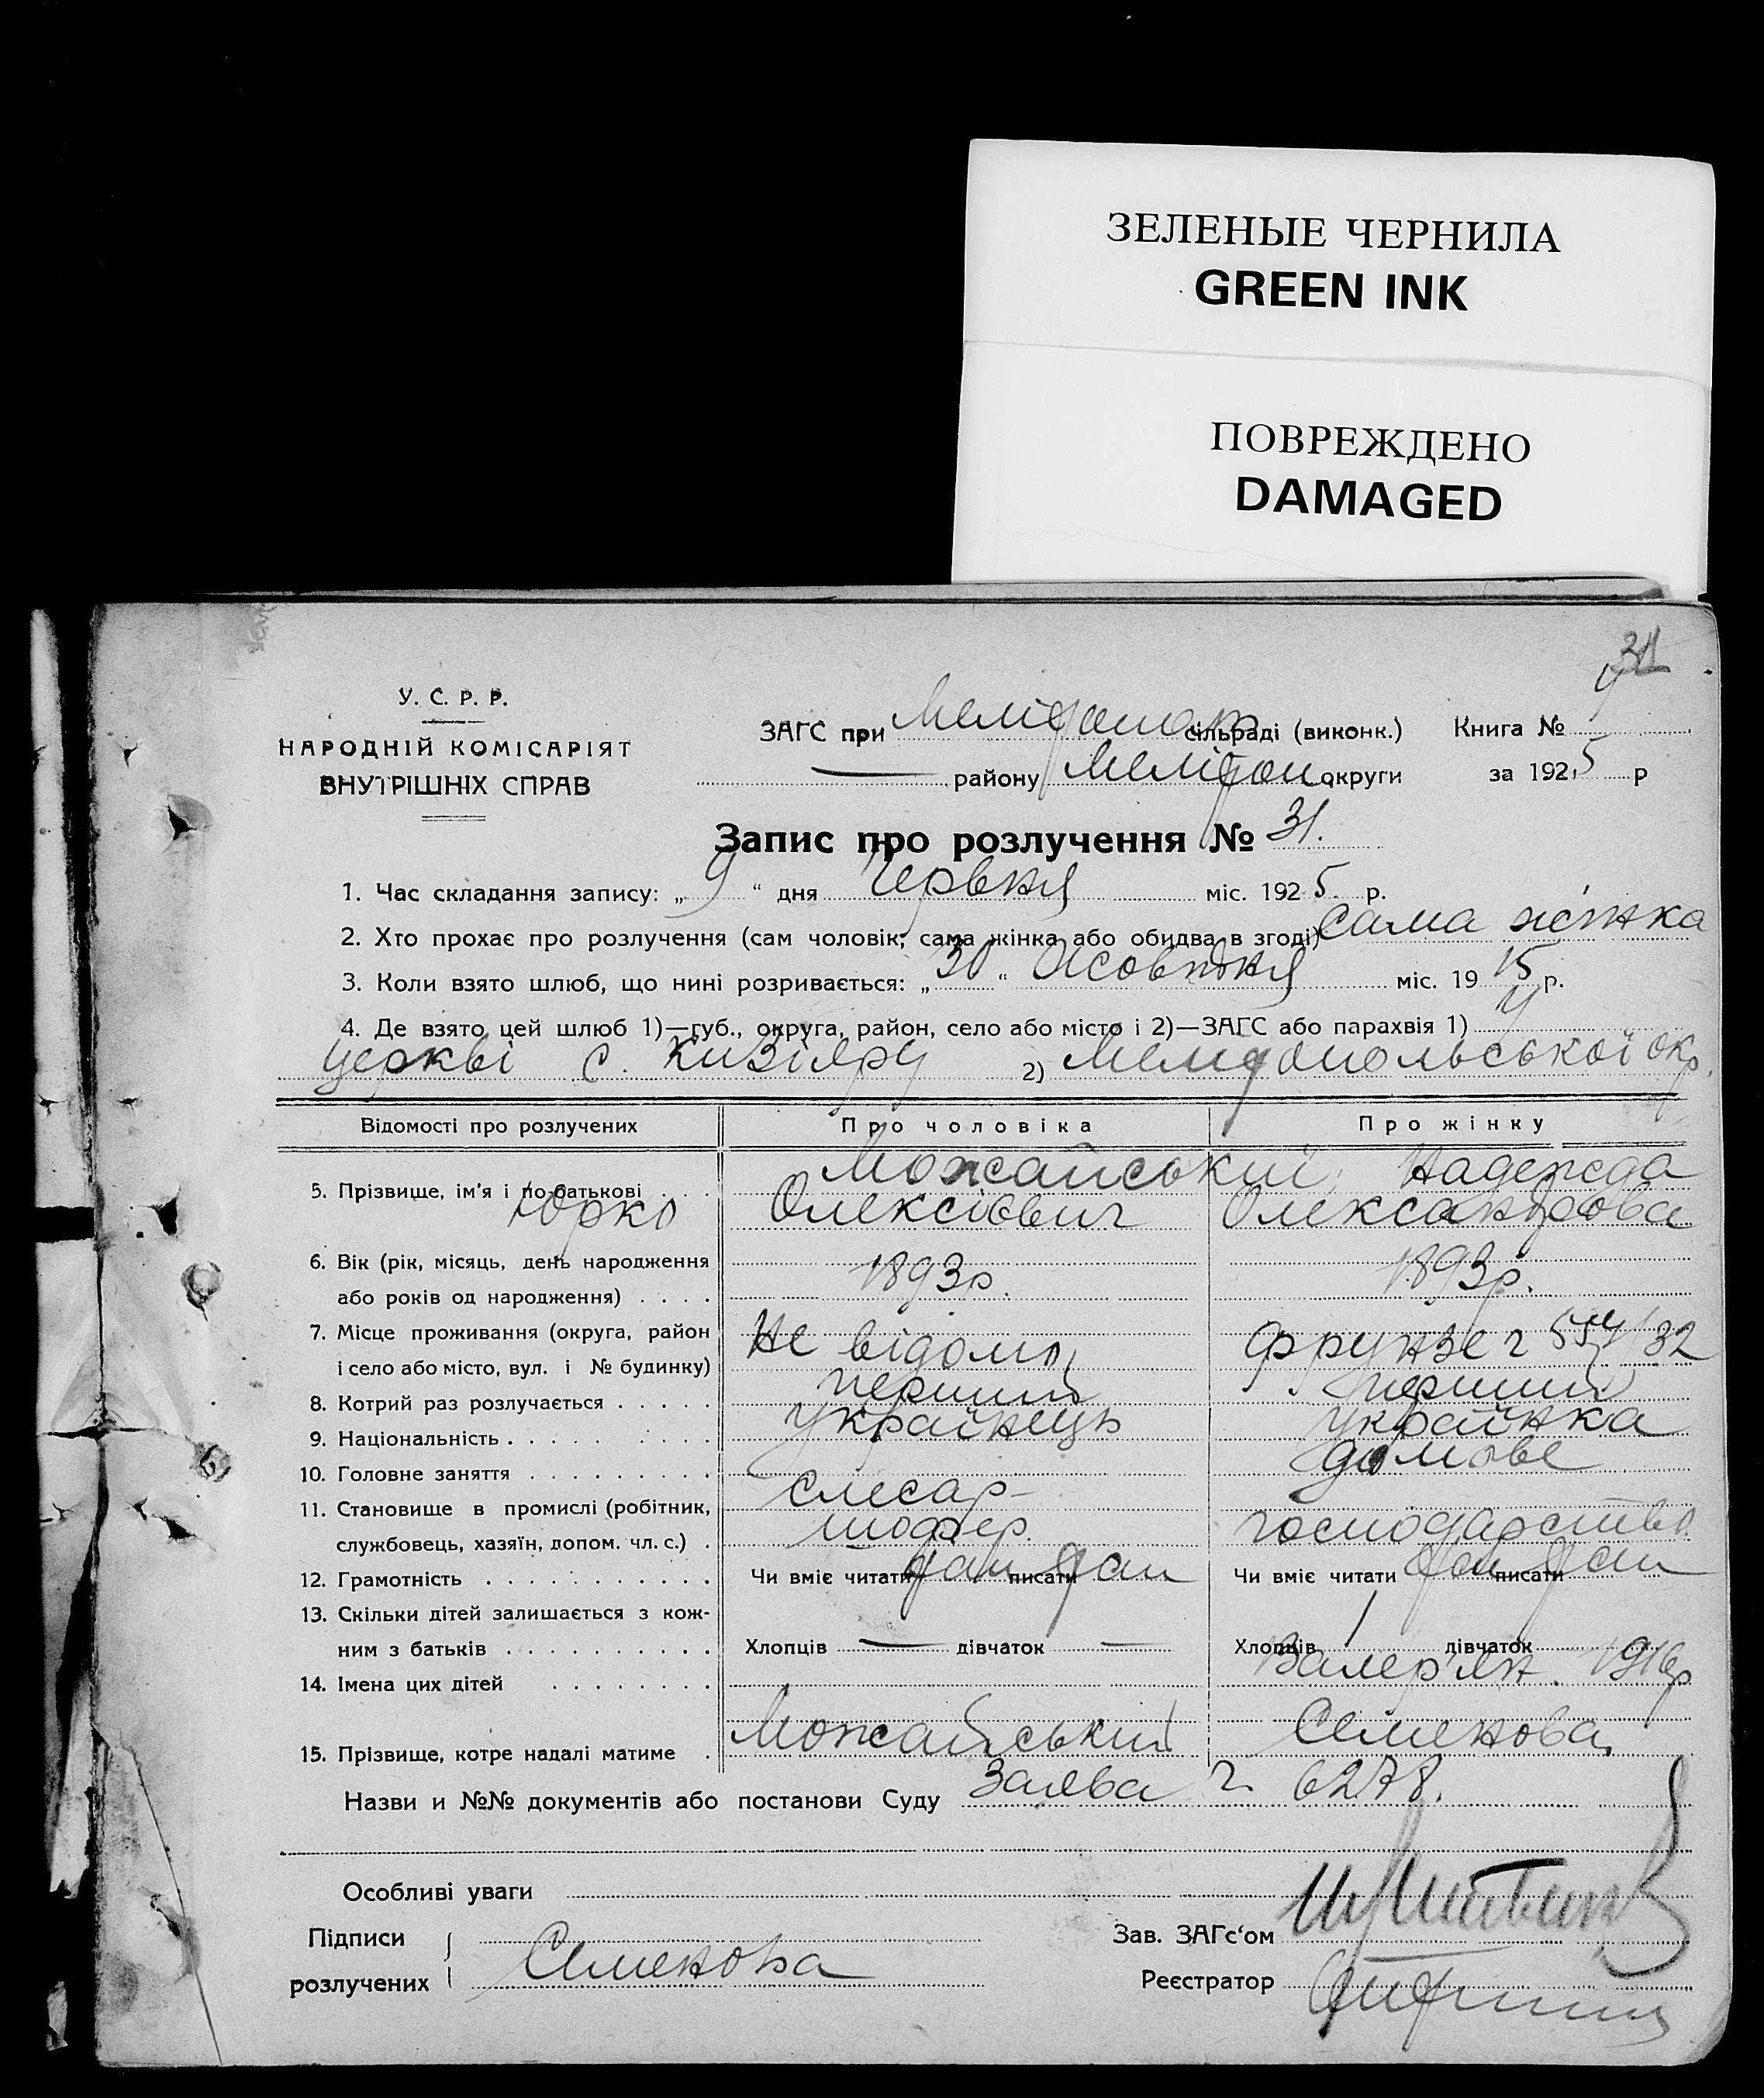 ЗЕЛЕНЫЕ ЧЕРНИЛА
GREEN INK
ПОВРЕЖДЕНО
DAMAGED
31
У. С. Р. Р.
НАРОДНІЙ КОМІСАРІЯТ
ВНУТРІШНІХ СПРАВ
ЗАГС при Мелітопол сільраді (виконк.) Книга №
— району Меліт округи за 1925 р
Запис про розлучення № 31.
1. Час складання запису: „9“ дня Червня міс. 1925 р.
2. Хто прохає про розлучення (сам чоловік, сама жінка або обидва в згоді) Сама жінка
3. Коли взято шлюб, що нині розривається: „30“ Жовтня міс. 1915 р.
4. Де взято цей шлюб 1)—губ., округа, район, село або місто і 2)—ЗАГС або парахвія 1) у
церкві с. Кизіяру 2) Мелітопольської окр.
Відомості про розлучених Про чоловіка Про жінку
5. Прізвище, ім'я і по-батькові . . . Можайський Надежда
Юрко Олексієвич Олександрова
6. Вік (рік, місяць, день народження
або років од народження) . . . . 1893р. 1893р.
7. Місце проживання (округа, район Не відомо Фрунзе 32
і село або місто, вул. і № будинку)
8. Котрий раз розлучається . . . . . перший перший
9. Національність . . . . . . . . українець українка
10. Головне заняття . . . . . . . . . домове
11. Становище в промислі (робітник, слесар-
службовець, хазяїн, допом. чл. с.) . шофер. господарство
12. Грамотність . . . . . . . . . . . Чи вміє читати так писати так Чи вміє читати так писати так
13. Скільки дітей залишається з кож-
ним з батьків . . . . . . . . . . Хлопців — дівчаток — Хлопців 1 дівчаток
14. Імена цих дітей . . . . . . . . Валер'ян. 1916р
15. Прізвище, котре надалі матиме . Можайський Семенова
Назви и №№ документів або постанови Суду Заява ч. 6278.
Особливі уваги
Підписи
розлучених Семенова
Зав. ЗАГс'ом
Реєстратор